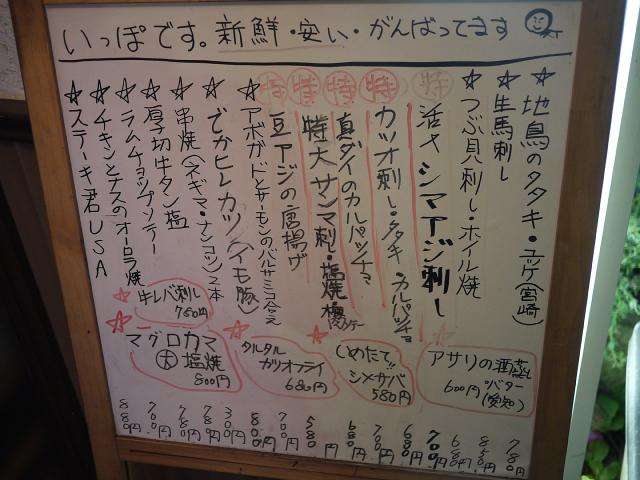 いっぽです。新鮮・安い・がんばってます
☆地鳥のタタキ・ユッケ(宮崎) 780円
☆生馬刺し 850円
☆つぶ貝刺し・ホイル焼 680円
特 活〆シマアジ刺し 700円
特 カツオ刺し・タタキ・カルパッチョ 680円
特 真ダイのカルパッチョ 700円
特 特大サンマ刺し・塩焼 680円
特 豆アジの唐揚げ 580円
☆アボガドとサーモンのバルサミコ合え 700円
☆でかヒレカツ(イモ豚) 880円
☆串焼(ネギマ・ナンコツ)2本 300円
☆厚切牛タン塩 780円
☆ラムチョップソテー 780円
☆チキンとナスのオーロラ焼 700円
☆ステーキ君USA 880円
アサリの酒蒸し
バター
600円(愛知)
しめたて!!
シメサバ
580円
タルタル
カツオフライ
680円
☆牛レバ刺し
780円
☆マグロカマ
大 塩焼
800円